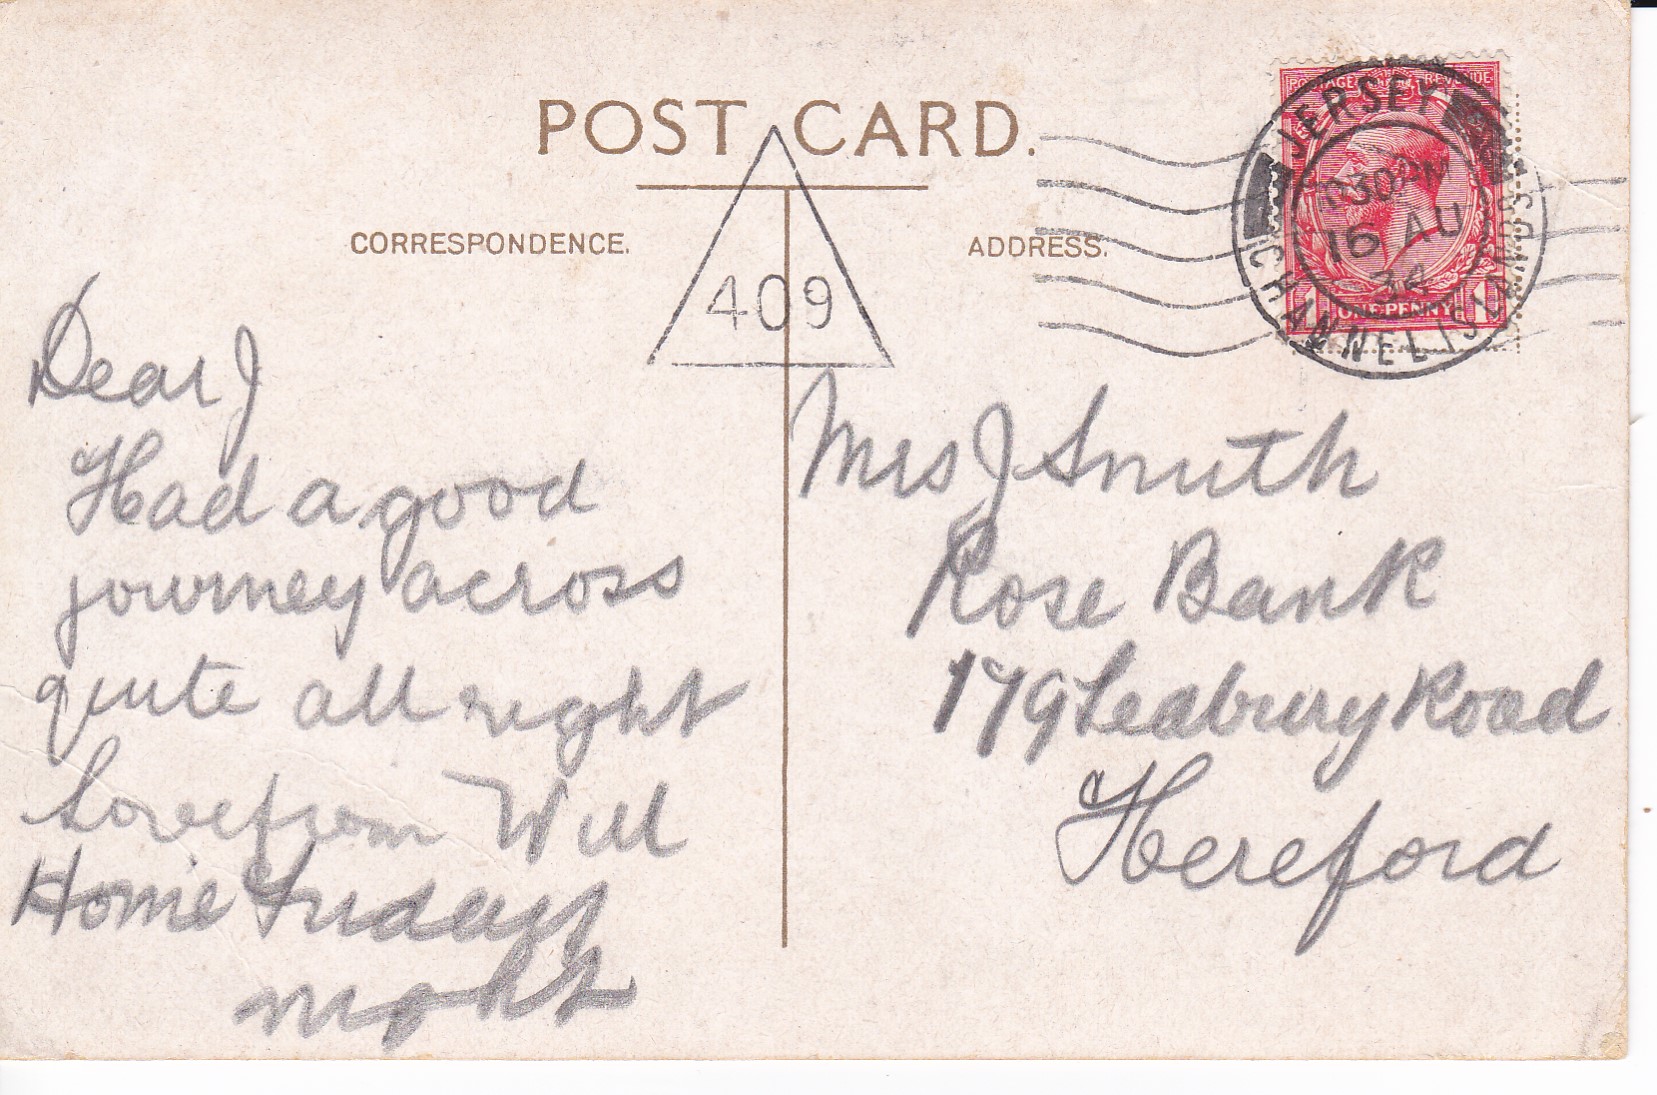 POST CARD.
CORRESPONDENCE.
ADDRESS.
409
POSTAGE REVENUE
ONE PENNY
JERSEY
CHANNEL ISLANDS
30 PM
16 AU
34
Dear J
Had a good
journey across
quite all right
Love from Will
Home Friday
night
Mrs J Smith
Rose Bank
179 Ledbury Road
Hereford